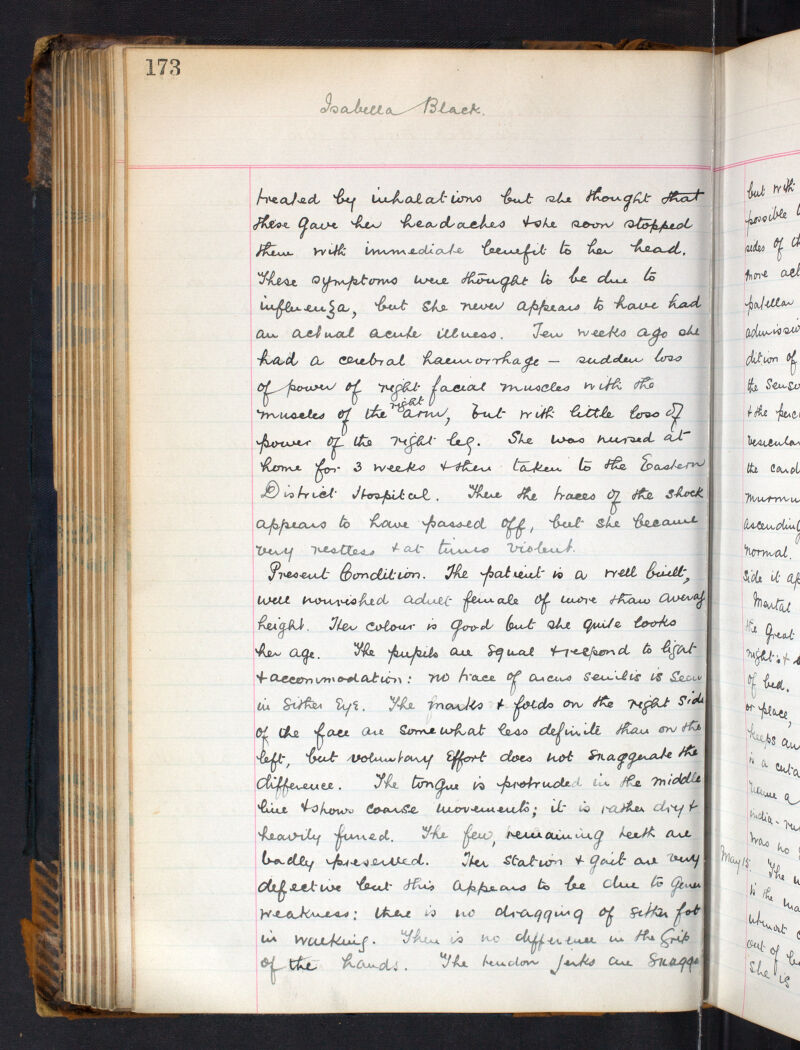 173
Isabella Black.
treated by inhalations but she thought that
these gave her headaches & she soon stopped
them with immediate benefit to her head.
These symptoms were thought to be due to
influenza, but she never appears to have had
an actual acute illness. Ten weeks ago she
had a cerebral haemorrhage – sudden loss
of power of right facial muscles with the
muscles of the right arm, but with little loss of
power of the right leg. She was nursed at
home for 3 weeks & then taken to the Eastern
District Hospital. There the traces of the shock
appears to have passed off, but she became
very restless & at times violent.
Present Condition. The patient is a well built,
well nourished adult female of more than averag
height. Her colour is good but she quite looks
her age. The pupils are equal & respond to light
& accommodation: no trace of arcus senilis is seen
in either eye. The marks & folds on the right side
of the face are somewhat less definite than on the
left, but voluntary effort does not exaggerate the
difference. The tongue is protruded in the middle
line & shows coarse movements; it is rather dry &
heavily furred. The few, remaining teeth are
badly preserved. Her station & gait are very
defective but this appears to be due to gener
weakness: there is no dragging of either foot
in walking. There is no difference in the grip
of the hands. The tendon jerks are exagge
but with
possible
sides of th
more act
patellar
admissio
dition of
the senso
& the perc
vesicular
the card
murmu
ascending
normal.
side it ap
Mental
the great
night: &
of bed.
or place,
keeps an
is a cuta
name a
india-ru
was no
May 15. The
is the ma
utmost
out of be
She is